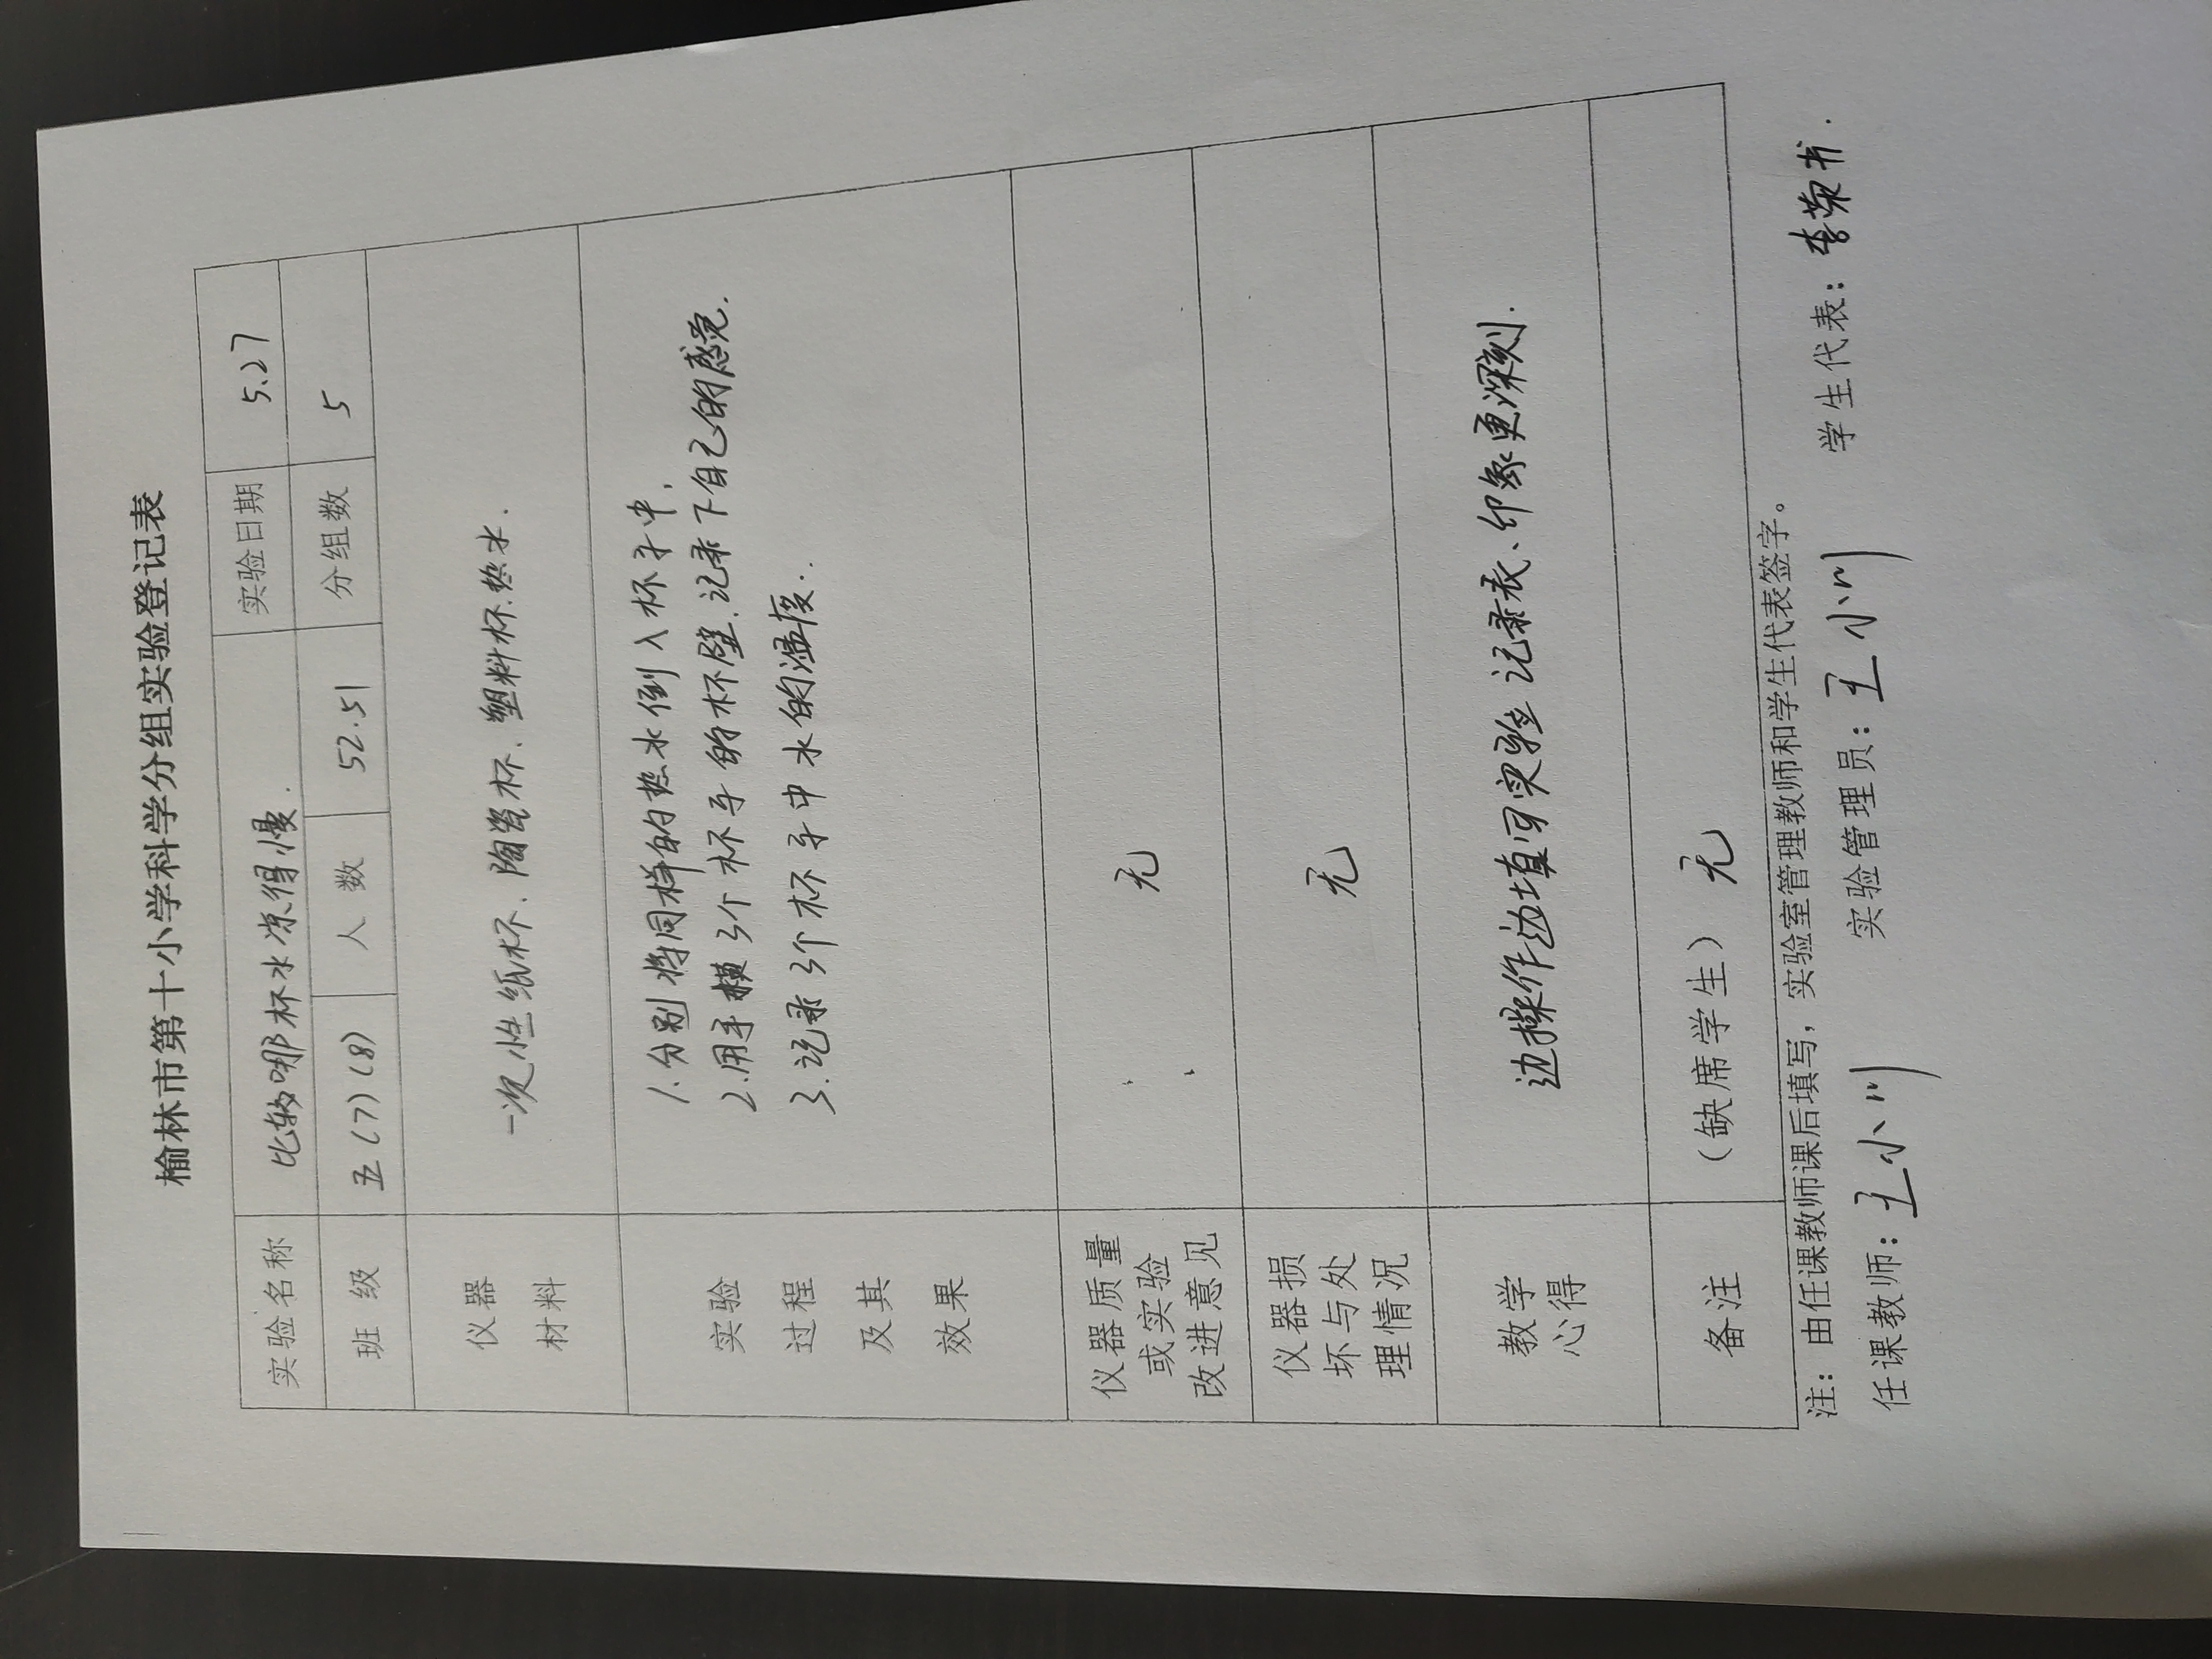 榆林市第十小学科学分组实验登记表
实验名称 比较哪杯水凉得慢. 实验日期 5.27
班 级 五(7)(8) 人 数 52.51 分组数 5
仪器
材料
一次性纸杯、陶瓷杯、塑料杯.热水.
实验
过程
及其
效果
1.分别将同样的热水倒入杯子中,
2.用手摸3个杯子的杯壁.记录下自己的感觉.
3.记录3个杯子中水的温度..
仪器质量
或实验
改进意见
无
仪器损
坏与处
理情况
无
教学
心得
边操作边填写实验记录表、印象更深刻.
备注 (缺席学生) 无
注:由任课教师课后填写,实验室管理教师和学生代表签字。
任课教师:王小川 实验管理员:王小川 学生代表:李荣书.